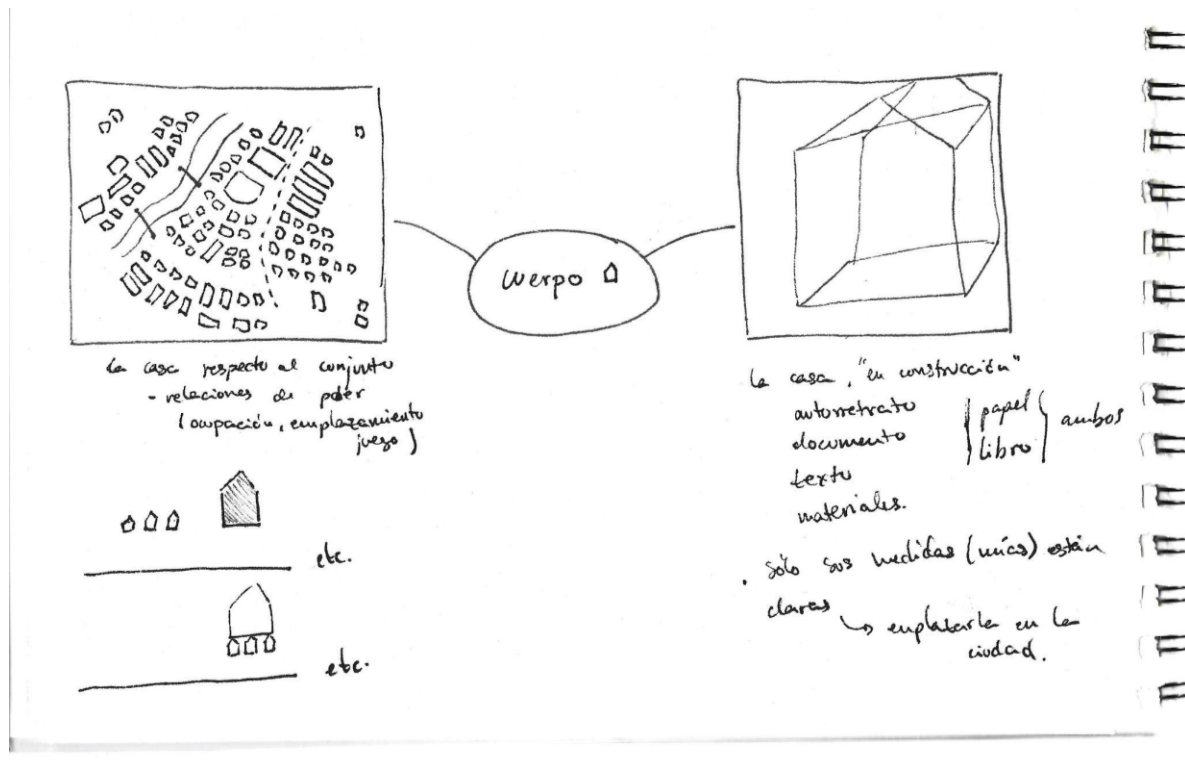 cuerpo
la casa respecto al conjunto
- relaciones de poder
(ocupación, emplazamiento
juego)
etc.
etc.
la casa, "en construcción"
autorretrato
documento
texto
materiales.
papel
libro
ambos
. sólo sus medidas (mías) están
claras
↳ emplazarla en la
ciudad.